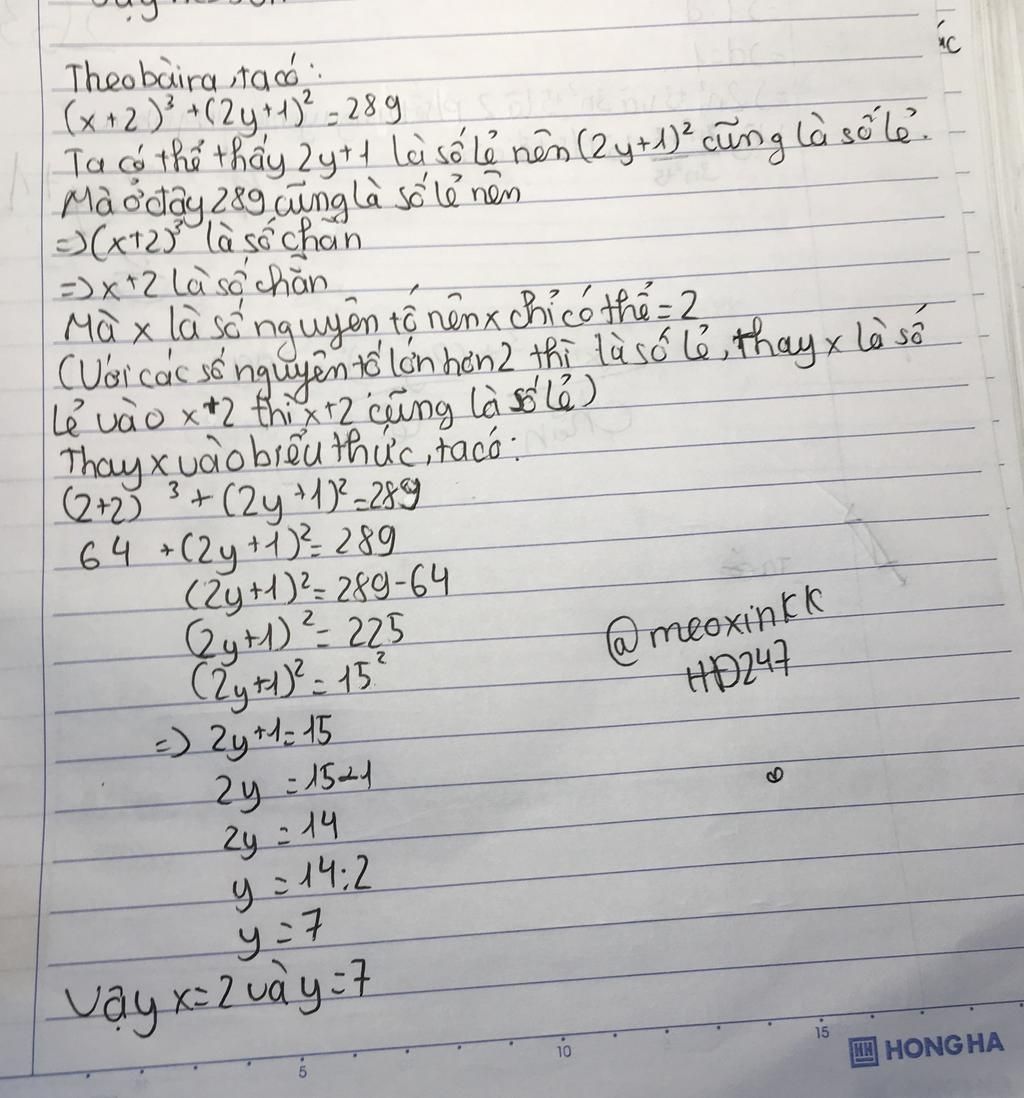 Theo bài ra, ta có:
(x+2)³ + (2y+1)² = 289
Ta có thể thấy 2y+1 là số lẻ nên (2y+1)² cũng là số lẻ.
Mà ở đây 289 cũng là số lẻ nên
=> (x+2)³ là số chẵn
=> x+2 là số chẵn
Mà x là số nguyên tố nên x chỉ có thể = 2
(Với các số nguyên tố lớn hơn 2 thì là số lẻ, thay x là số
lẻ vào x+2 thì x+2 cũng là số lẻ)
Thay x vào biểu thức, ta có:
(2+2)³ + (2y+1)² = 289
64 + (2y+1)² = 289
(2y+1)² = 289-64
(2y+1)² = 225
(2y+1)² = 15²
=> 2y+1 = 15
2y = 15-1
2y = 14
y = 14:2
y = 7
Vậy x = 2 và y = 7
@meoxinkk
HD247
5 10 15
HH HONG HA